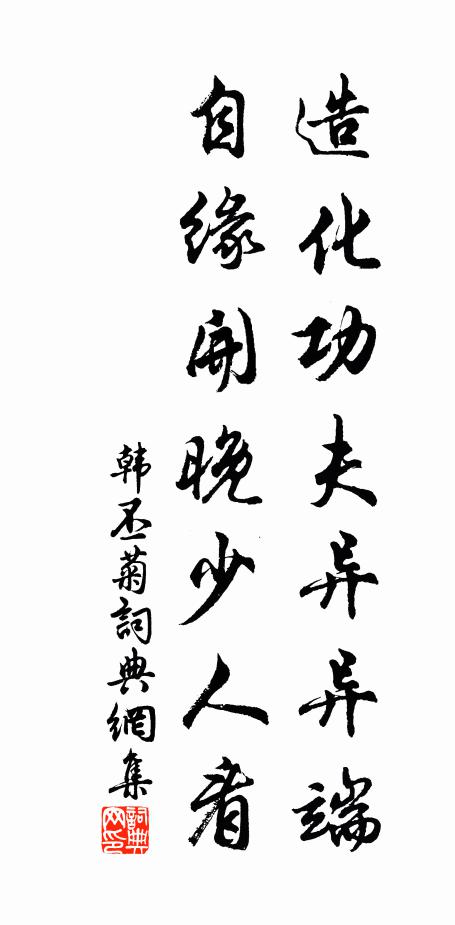 造化功夫异异端
自缘开晚少人看
韩丕菊詞典網集
詞典网印